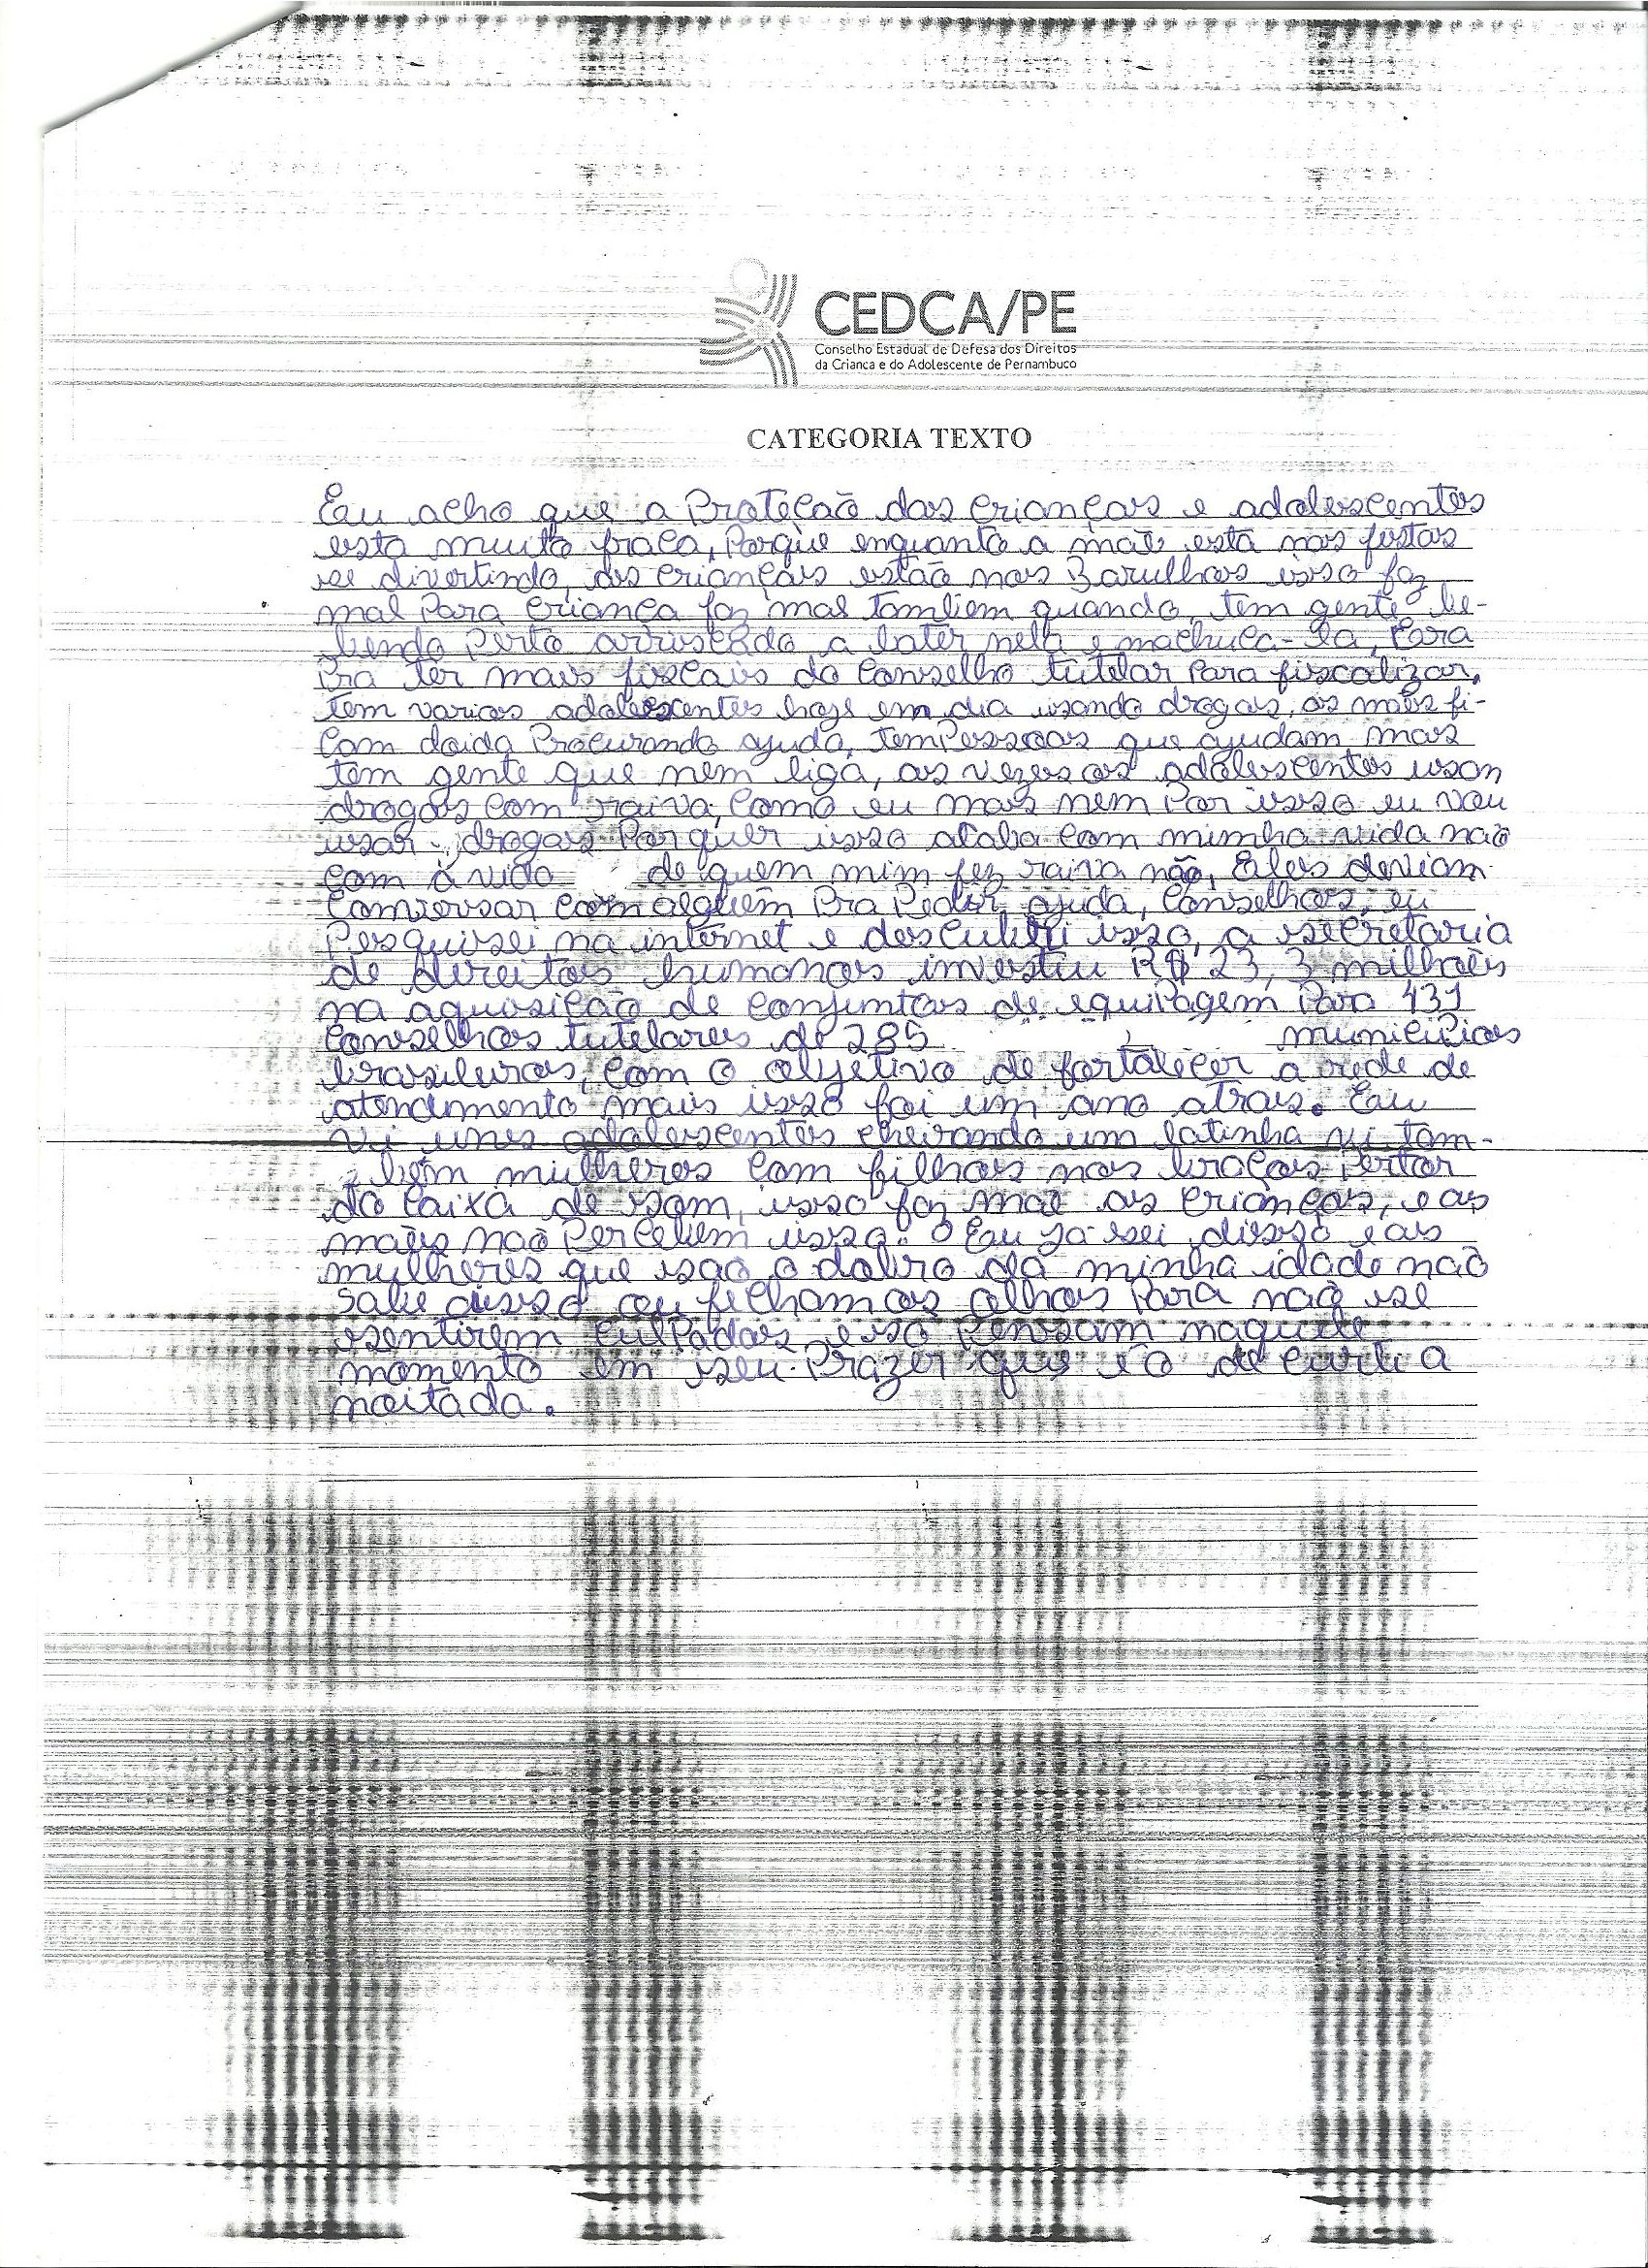 CEDCA/PE
Conselho Estadual de Defesa dos Direitos
da Crianca e do Adolescente de Pernambuco
CATEGORIA TEXTO
Eu acho que a Proteção das crianças e adolescentes
esta muito fraca, Porque enquanto a mãe está nas festas
se divertindo, as crianças estão nos Barulhos isso faz
mal Para criança faz mal tambem quando tem gente be-
bendo Perto arriscado a bater nela e machuca-la, Era
Pra ter mais fiscais do Conselho tutelar Para fiscalizar,
tem varios adolescentes hoje em dia usando drogas, as mães fi-
cam doida Procurando ajuda, tem Pessoas que ajudam mas
tem gente que nem liga, as vezes os adolescentes usam
drogas com raiva, como eu mais nem Por isso eu vou
usar drogas Por quer isso acaba com mimha vida não
com à vida de quem mim fez raiva não, Eles deviam
conversar com alguém Pra Pedir ajuda, Conselhos, eu
Pesquisei na internet e descubri isso, a secretaria
de direitos humanos investiu R$ 23, 3 milhões
na aquisição de conjuntos de equiPagem Para 431
Conselhos tutelares de 285 municiPios
brasileiros, com o objetivo de fortalecer a rede de
atendimento mais isso foi um ano atrais. Eu
vi uns adolescentes cheirando um latinha vi tam-
bém mulheres com filhos nos braços Pertor
da caixa de som, isso faz mal as crianças, e as
mães não Percebem isso. Eu já sei disso e as
mulheres que são o dobro da minha idade não
sabe disso ou fecham os olhos Para não se
sentirem culPadas e só Pensam naquele
momento em seu Prazer que é o de curti a
noitada.